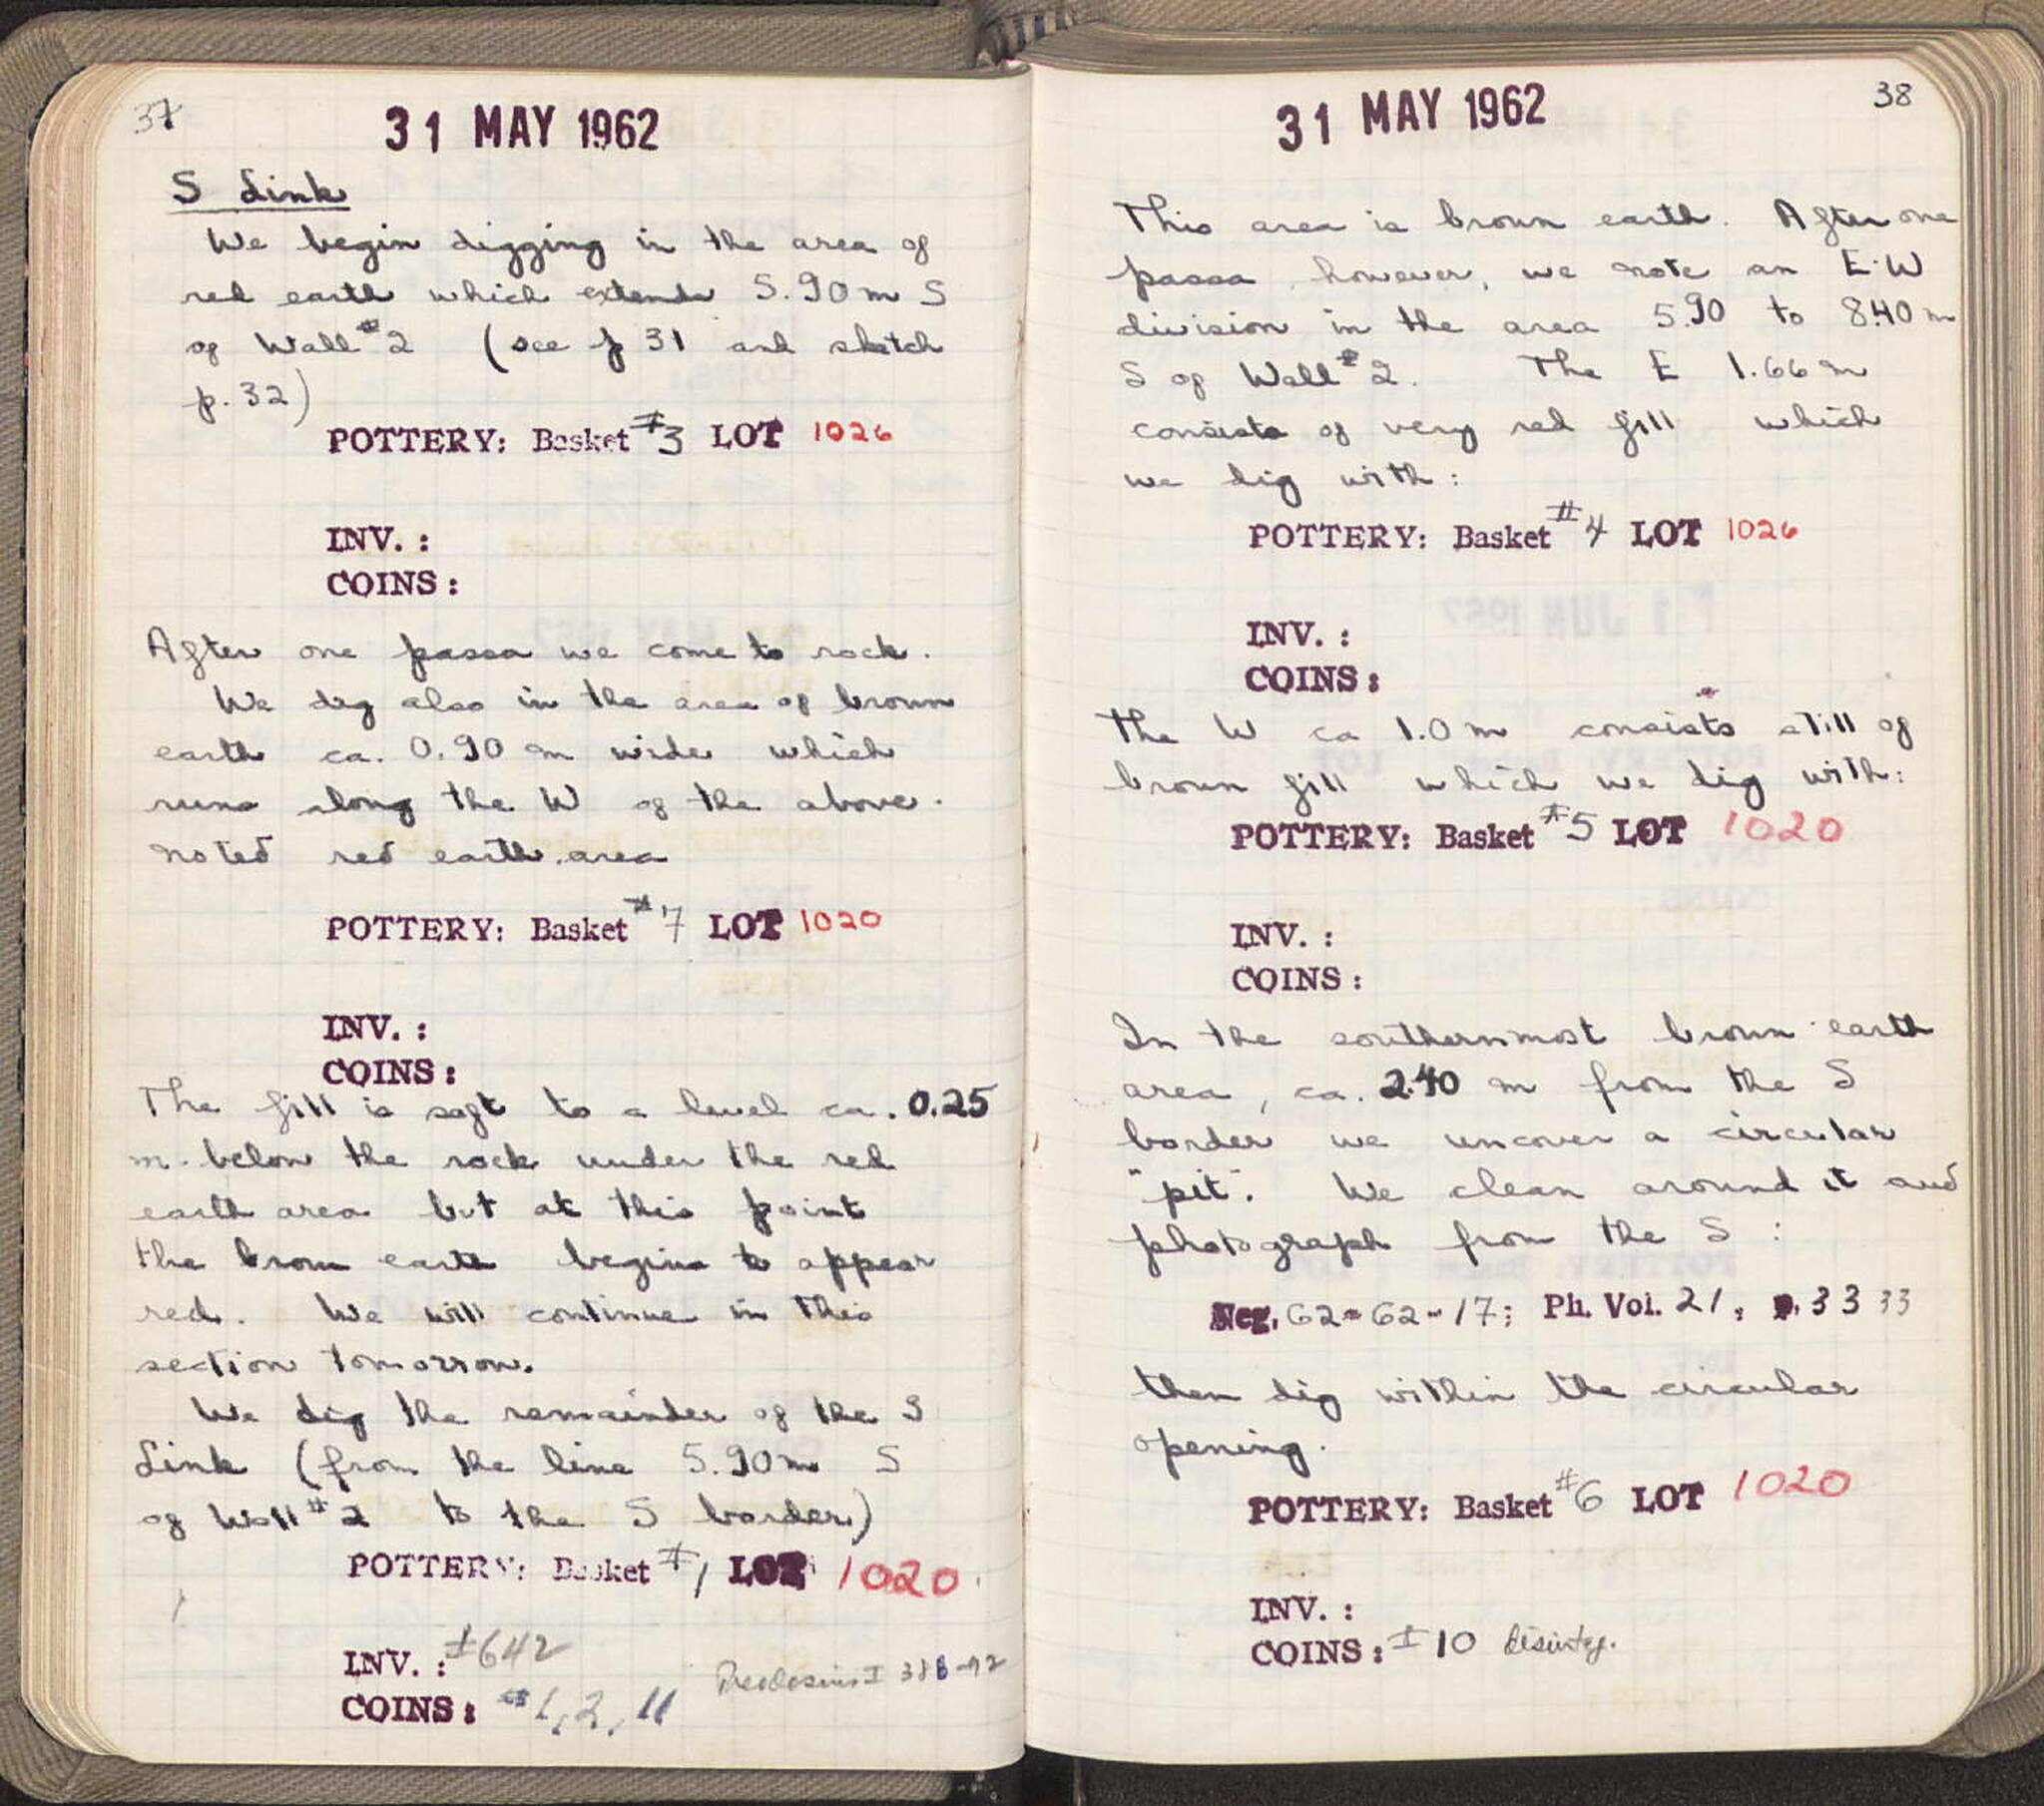 37
31 MAY 1962
S Link
We begin digging in the area of
red earth which extends 5.90 m S
of Wall #2 (see p 31 and sketch
p. 32)
POTTERY: Basket #3 LOT 1026
INV. :
COINS :
After one passa we come to rock.
We dig also in the area of brown
earth ca. 0.90 m wide which
runs along the W of the above-
noted red earth area
POTTERY: Basket #7 LOT 1020
INV. :
COINS :
The fill is soft to a level ca. 0.25
m. below the rock under the red
earth area but at this point
the brown earth begins to appear
red. We will continue in this
section tomorrow.
We dig the remainder of the S
Link (from the line 5.90 m S
of Wall #2 to the S border)
POTTERY: Basket #1 LOT 1020
INV. : #642
COINS : #1, 2, 11 Theodosius I 388-92
38
31 MAY 1962
This area is brown earth. After one
passa, however, we note an E-W
division in the area 5.90 to 8.40 m
S of Wall #2. The E 1.66 m
consists of very red fill which
we dig with:
POTTERY: Basket #4 LOT 1026
INV. :
COINS :
The W ca 1.0 m consists still of
brown fill which we dig with:
POTTERY: Basket #5 LOT 1020
INV. :
COINS :
In the southernmost brown earth
area, ca. 2.40 m from the S
border we uncover a circular
"pit". We clean around it and
photograph from the S :
Neg. 62-62-17; Ph. Vol. 21, p. 33 33
then dig within the circular
opening.
POTTERY: Basket #6 LOT 1020
INV. :
COINS : #10 disintg.